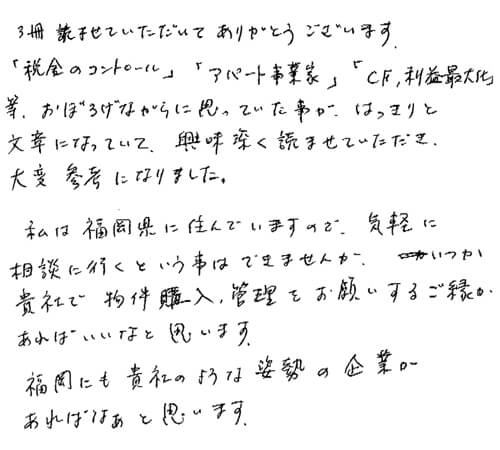 3冊 読ませていただいて ありがとうございます。
「税金のコントロール」「アパート事業家」「CF,利益最大化」
等、おぼろげながらに思っていた事が、はっきりと
文章になっていて、興味深く読ませていただき、
大変 参考になりました。
私は福岡県に住んでいますので、気軽に
相談に行くという事はできませんが、いつか
貴社で 物件購入,管理をお願いするご縁が
あればいいなと思います。
福岡にも貴社のような姿勢の企業が
あればなぁと思います。